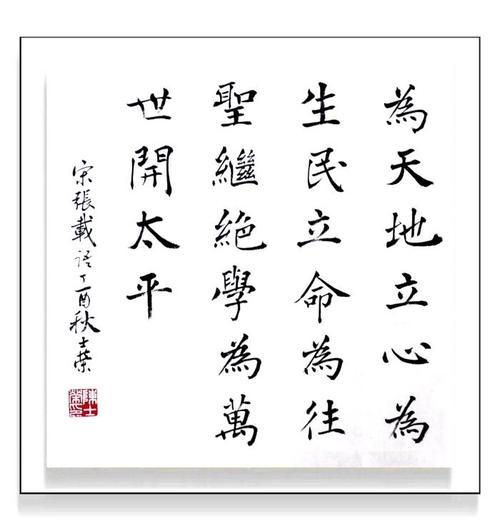 為天地立心為
生民立命為往
聖繼絕學為萬
世開太平
宋張載語丁酉秋士榮
陳士榮印